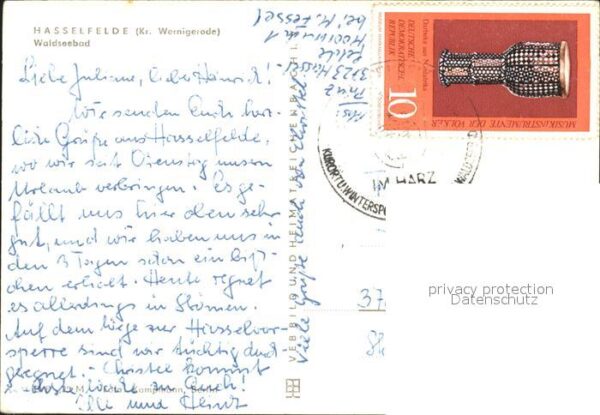 HASSELFELDE (Kr. Wernigerode)
Waldseebad
Liebe Juliane, lieber Heinrich!
Wir senden Euch herz-
liche Grüße aus Hasselfelde,
wo wir seit Dienstag unsern
Urlaub verbringen. Es ge-
fällt uns hier oben sehr
gut, und wir haben uns in
den 3 Tagen schon ein biß-
chen erholt. Heute regnet
es allerdings in Strömen.
Auf dem Wege zur Hasselvor-
sperre sind wir tüchtig durch
geregnet. - Christel kommt
Woche zu Euch!
Elli und Heinz
Viele Grüße auch von Christel
VEB BILD UND HEIMAT REICHENBACH I. V.
bei M. Fessel
Harz
MUSIKINSTRUMENTE DER VÖLKER
DEUTSCHE
DEMOKRATISCHE
REPUBLIK
10
IM HARZ
KURORT U. WINTERSPO
37
privacy protection
Datenschutz